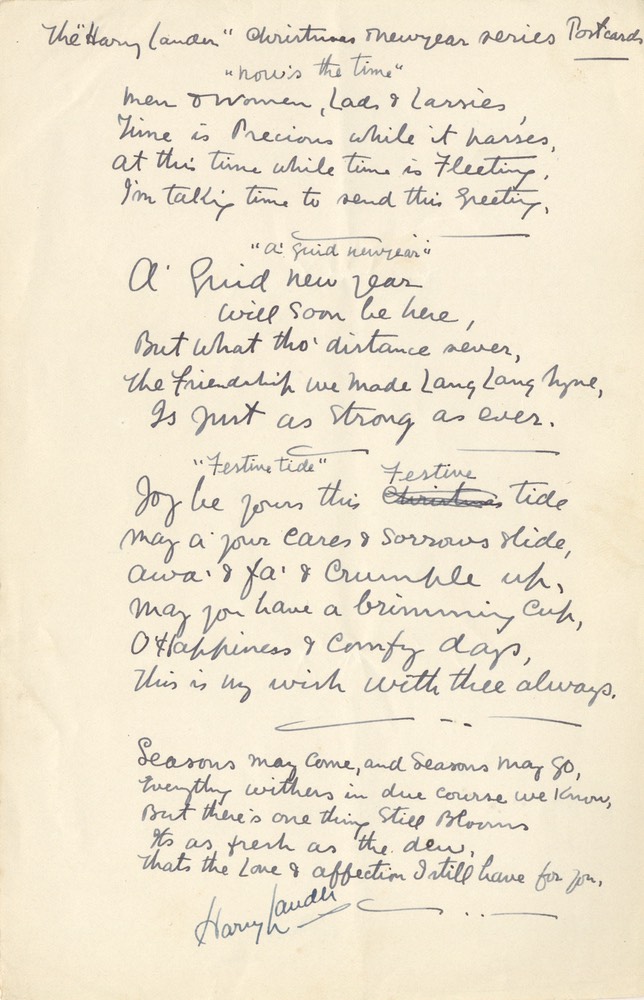 The "Harry Lauder" Christmas & newyear series Postcards
"now's the time"
Men & Women, Lads & Lassies,
Time is Precious while it passes,
at this time while time is Fleeting,
I'm taking time to send this Greeting,
"A' Guid newyear"
A' Guid new year
will soon be here,
But what tho' distance sever,
the friendship we made Lang Lang Syne,
Is just as strong as ever.
"Festive tide"
Festive
Joy be yours this Christmas tide
may a' your cares & sorrows slide,
awa' & fa' & crumple up,
may you have a brimming cup,
O' Happiness & comfy days,
This is my wish with thee always.
Seasons may come, and Seasons may go,
Everything withers in due course we know,
But there's one thing still Blooms
Its as fresh as the dew,
thats the Love & affection I still have for you.
Harry Lauder